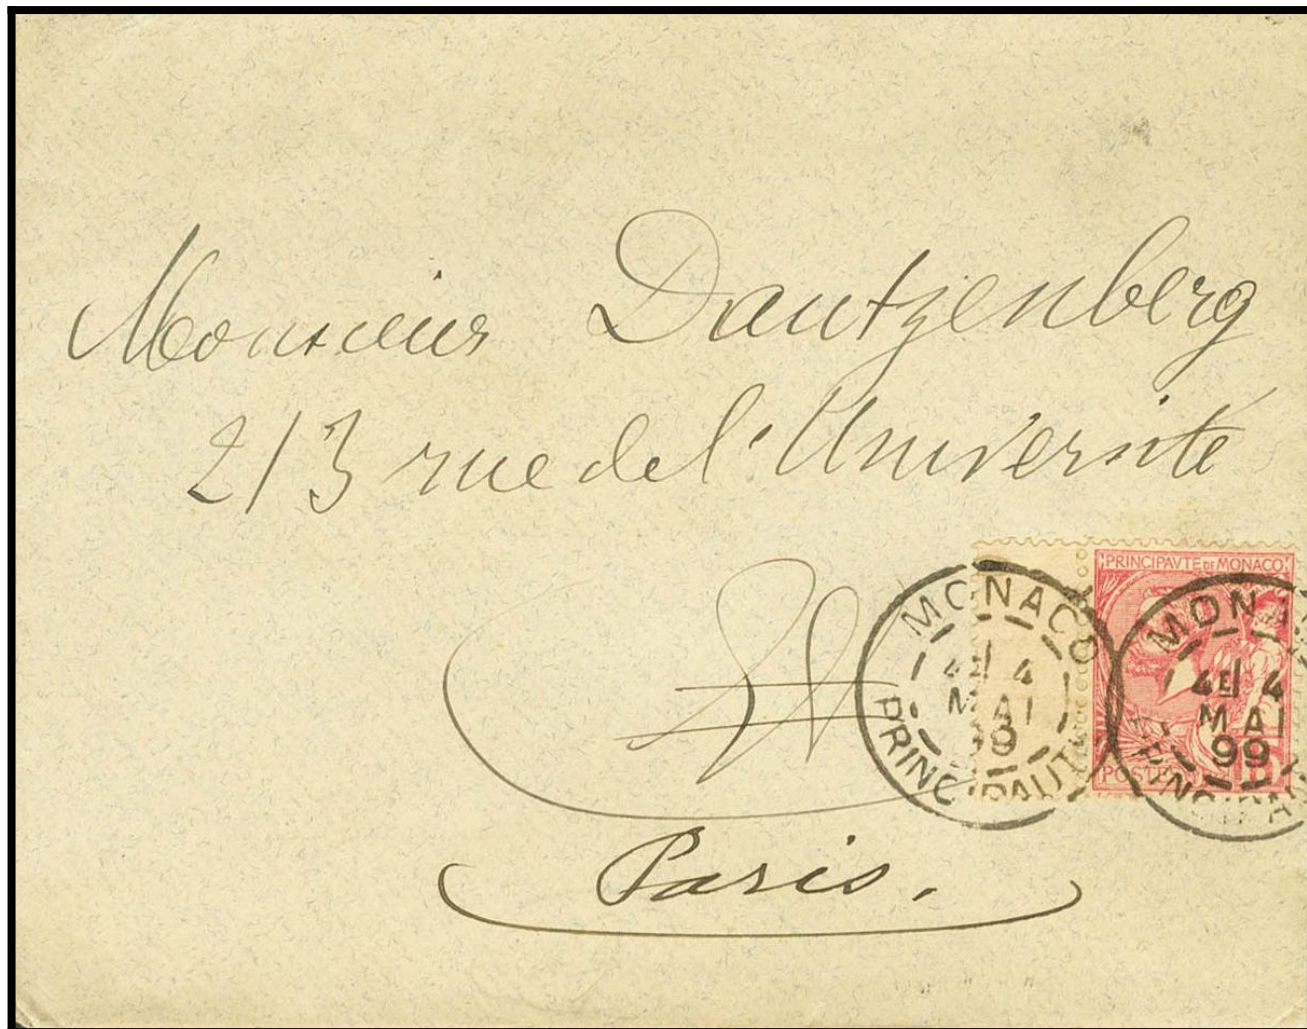 Monsieur Dautzenberg
213 rue de l'Université
Paris.
PRINCIPAVTE DE MONACO
POSTE
15
MONACO
4E 4
MAI
99
PRINCIPAUTÉ
MONA
4E 4
MAI
99
PRINCIPA